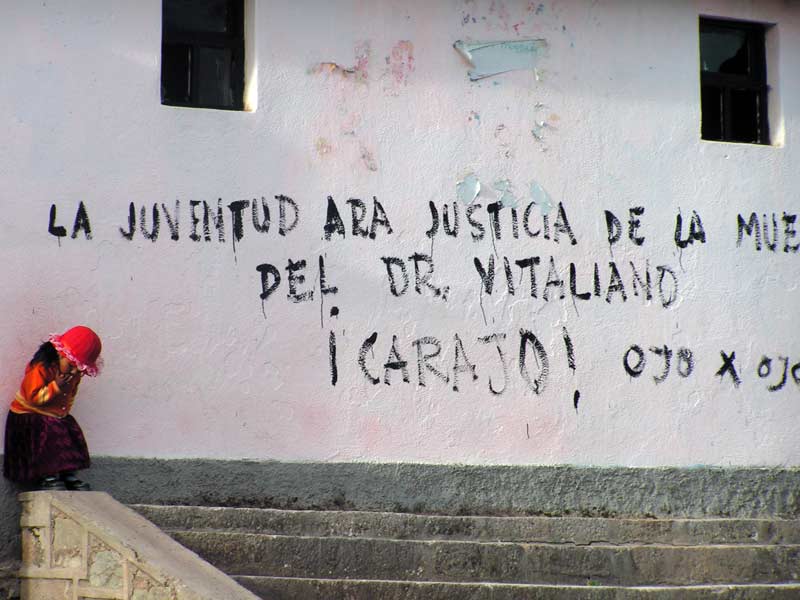 LA JUVENTUD ARA JUSTICIA DE LA MUE
DEL DR. VITALIANO
¡CARAJO! OJO X OJO